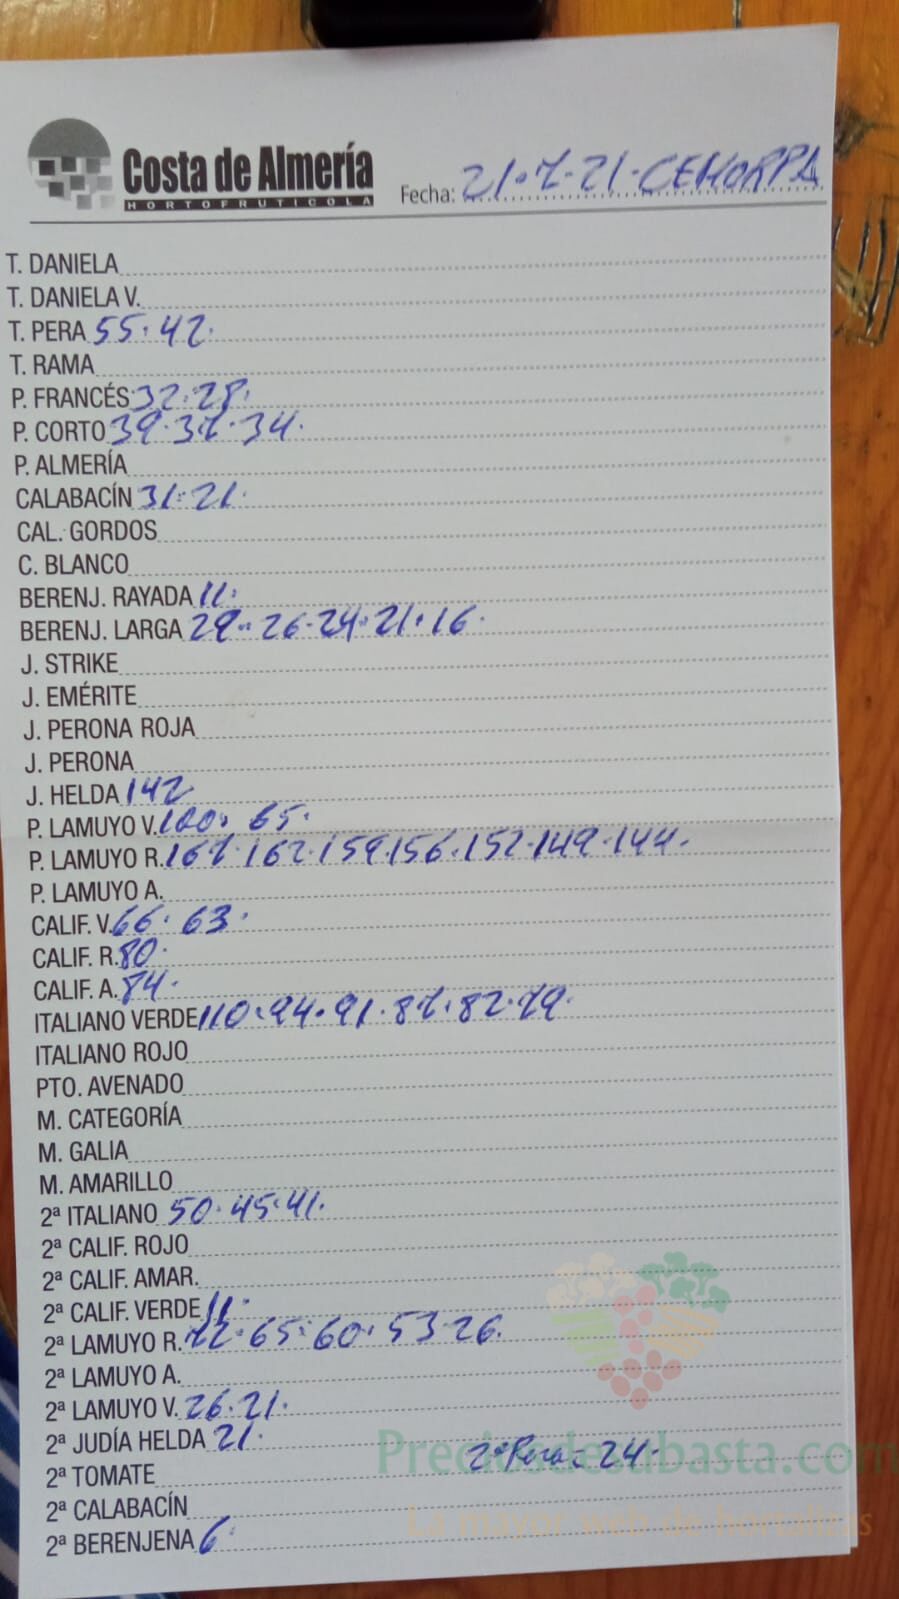 Costa de Almería
HORTOFRUTICOLA
Fecha: 21.7.21. CEHORPA
T. DANIELA
T. DANIELA V.
T. PERA 55. 42.
T. RAMA
P. FRANCÉS 32. 28.
P. CORTO 39. 37. 34.
P. ALMERÍA
CALABACÍN 31. 21.
CAL. GORDOS
C. BLANCO
BERENJ. RAYADA 11.
BERENJ. LARGA 29. 26. 24. 21. 16.
J. STRIKE
J. EMÉRITE
J. PERONA ROJA
J. PERONA
J. HELDA 142
P. LAMUYO V. 100. 65.
P. LAMUYO R. 167. 162. 159. 156. 152. 149. 144.
P. LAMUYO A.
CALIF. V. 66. 63.
CALIF. R. 80.
CALIF. A. 84.
ITALIANO VERDE 110. 94. 91. 87. 82. 79.
ITALIANO ROJO
PTO. AVENADO
M. CATEGORÍA
M. GALIA
M. AMARILLO
2ª ITALIANO 50. 45. 41.
2ª CALIF. ROJO
2ª CALIF. AMAR.
2ª CALIF. VERDE 11.
2ª LAMUYO R. 72. 65. 60. 53 26.
2ª LAMUYO A.
2ª LAMUYO V. 26. 21.
2ª JUDÍA HELDA 21.
2ª TOMATE 2ª Pera = 24.
2ª CALABACÍN
2ª BERENJENA 6.
Preciosdesubasta.com
La mayor web de hortalizas